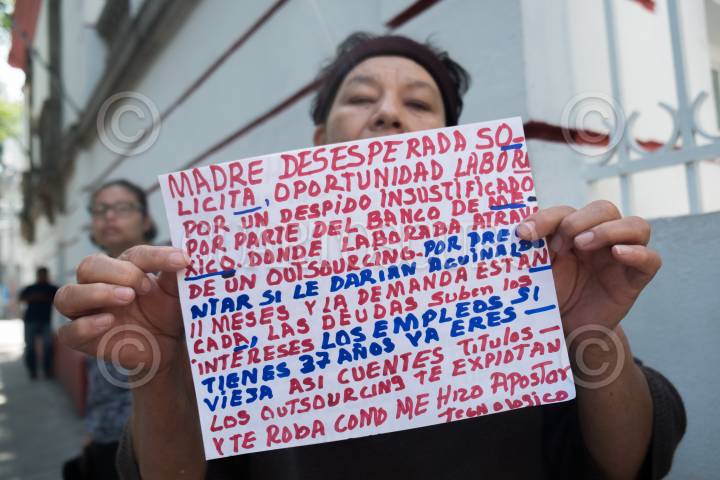 MADRE DESESPERADA SO-
LICITA, OPORTUNIDAD LABORA
POR UN DESPIDO INSUSTIFICADO
POR PARTE DEL BANCO DE MÉ-
XICO. DONDE LABORABA ATRAV
DE UN OUTSOURCING. POR PREGU-
NTAR SI LE DARIAN AGUINALDO
11 MESES Y LA DEMANDA ESTAN
CADA, LAS DEUDAS SUBEN LOS
INTERESES LOS EMPLEOS SI
TIENES 37 AÑOS YA ERES
VIEJA ASI CUENTES TITULOS-
LOS OUTSOURCING TE EXPLOTAN
Y TE ROBA COMO ME HIZO APOSTOR
TECNOLOGICO